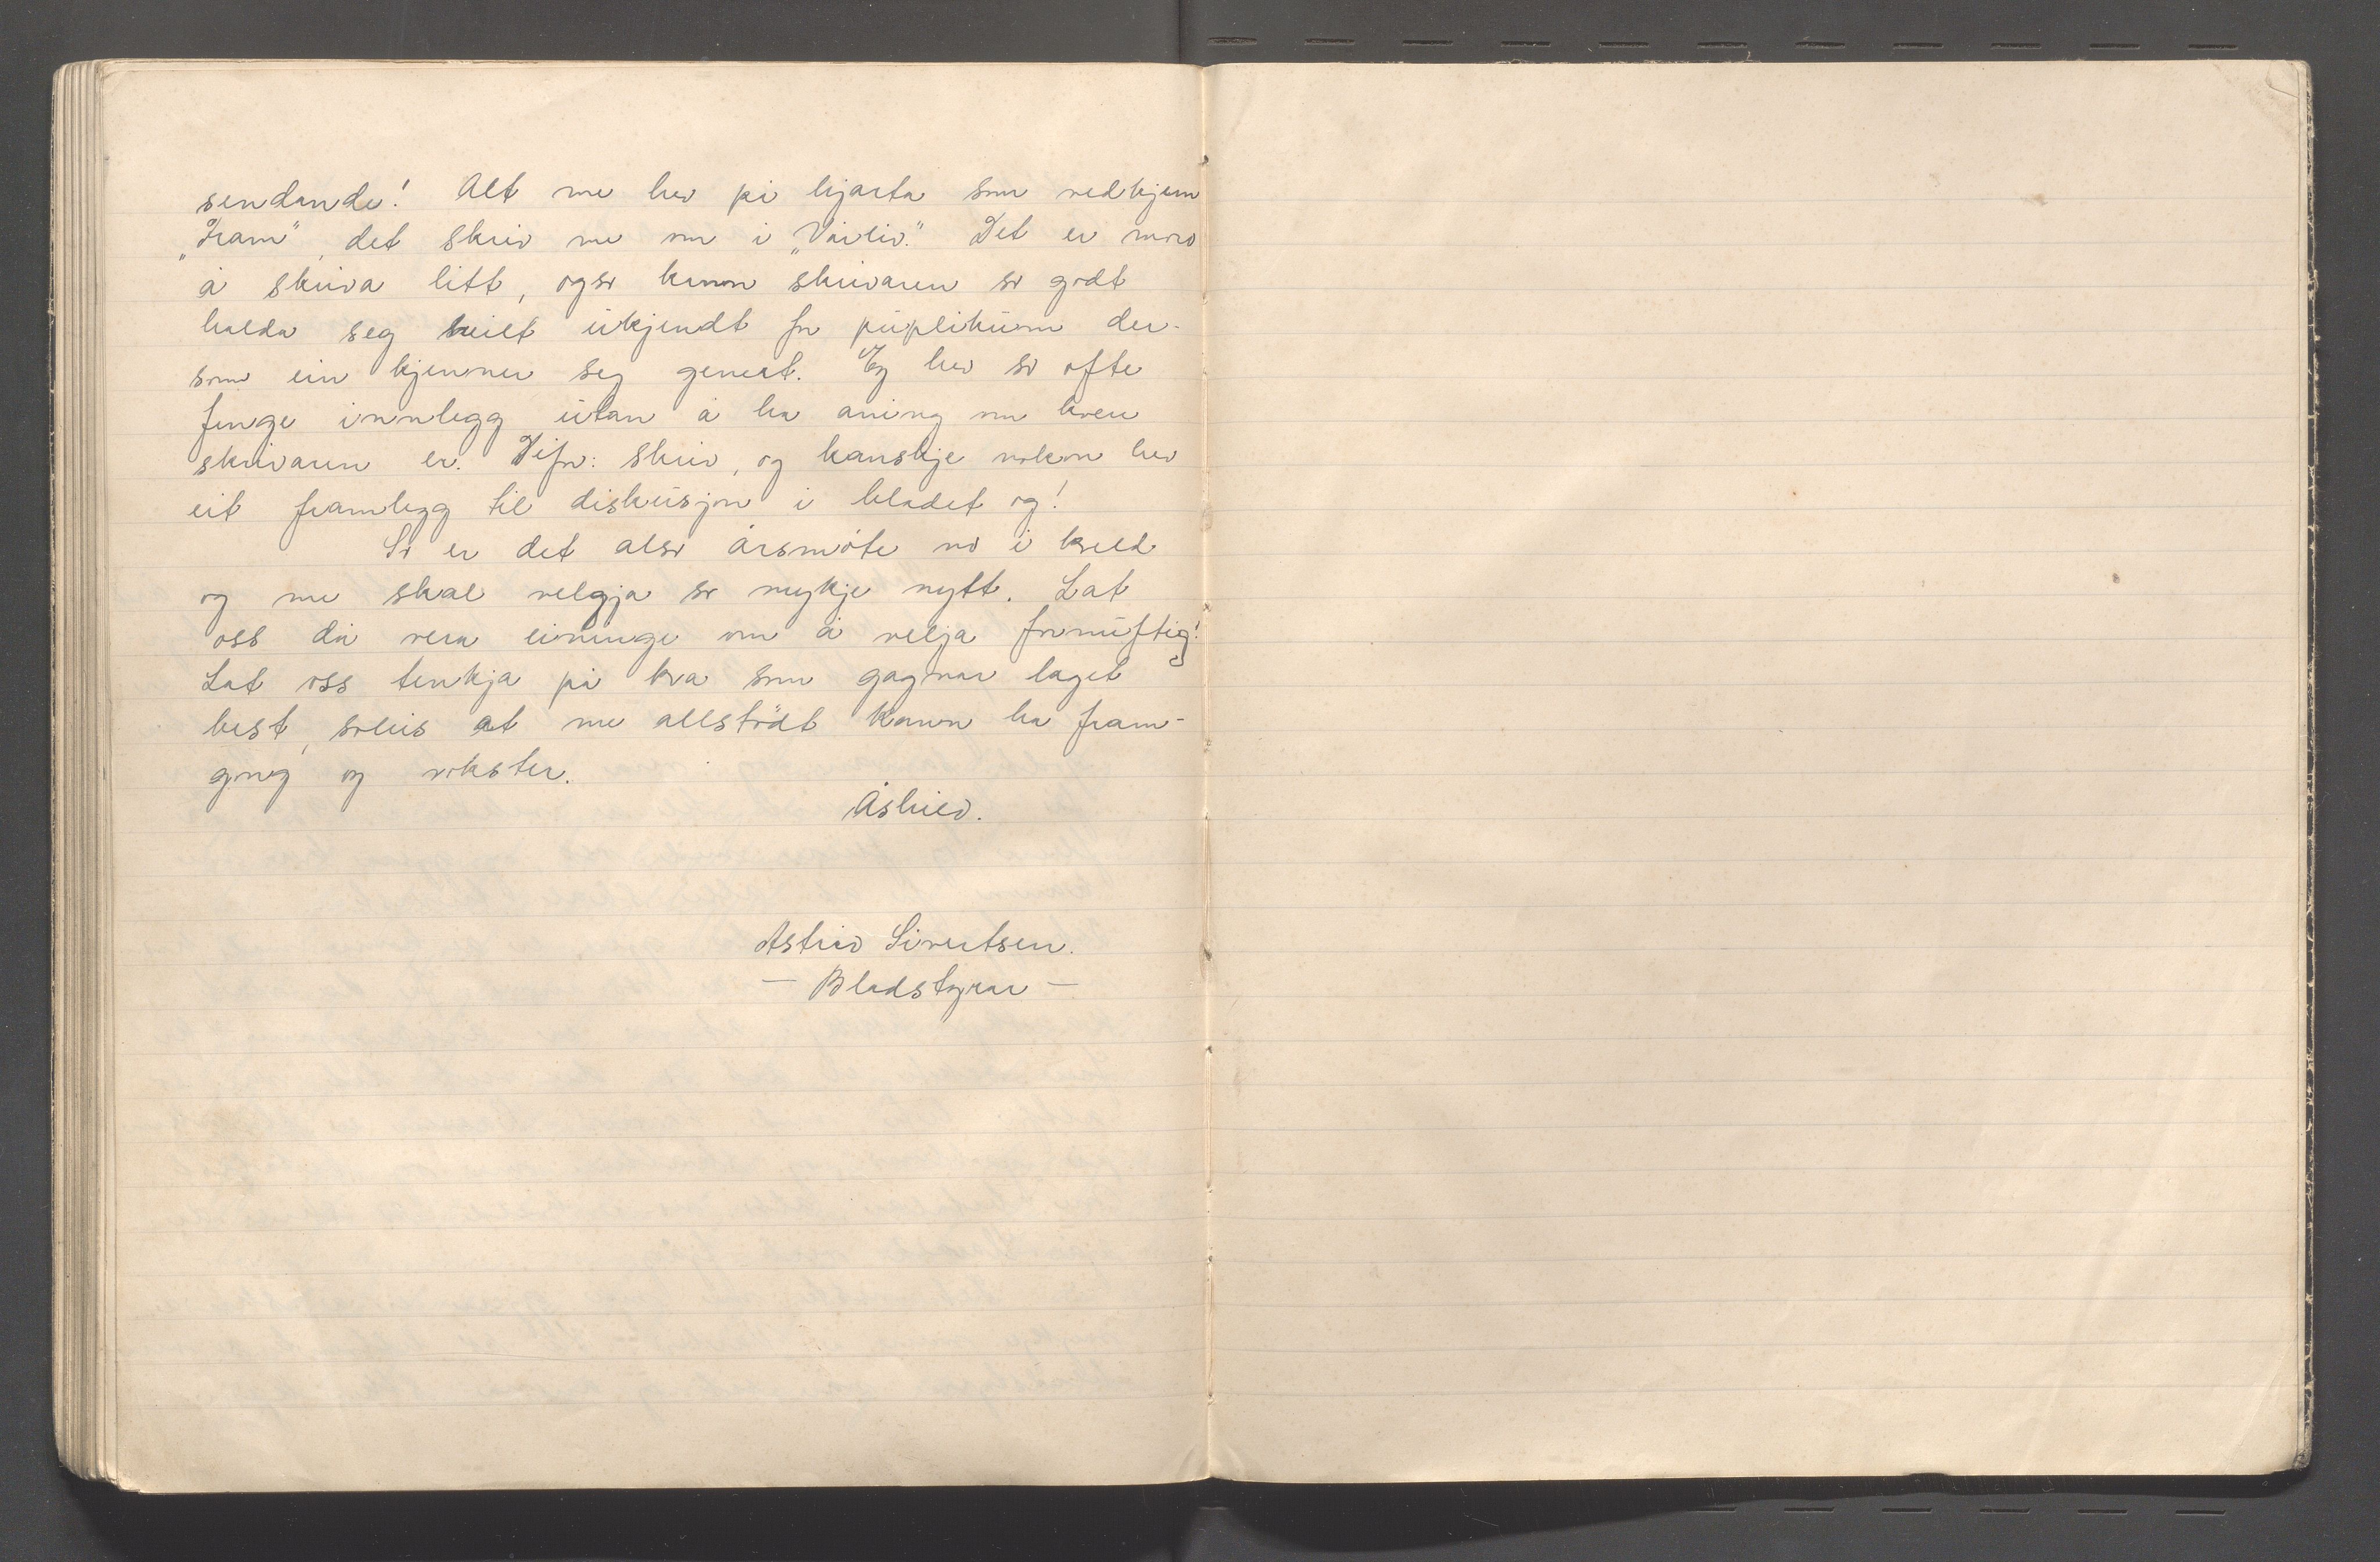 sendande! Alt me hev på hjarta som vedkjem
„Fram", det skriv me om i „Vårliv." Det er moro
å skriva litt, ogso kann skrivaren so godt
halda seg heilt ukjendt for puplikum der-
som ein kjenner seg genert. Eg hev so ofte
fenge innlegg utan å ha aning om kven
skrivaren er. Difor: skriv, og kanskje nokon hev
eit framlegg til diskusjon i bladet og!
So er det also årsmöte no i kveld
og me skal velgja so mykje nytt. Lat
oss då vera eininge om å velja fornuftig!
Lat oss tenkja på kva som gagnar laget
best, soleis at me allstödt kann ha fram-
gong og vokster.
Astrid Sivertsen.
— Bladstyrar —